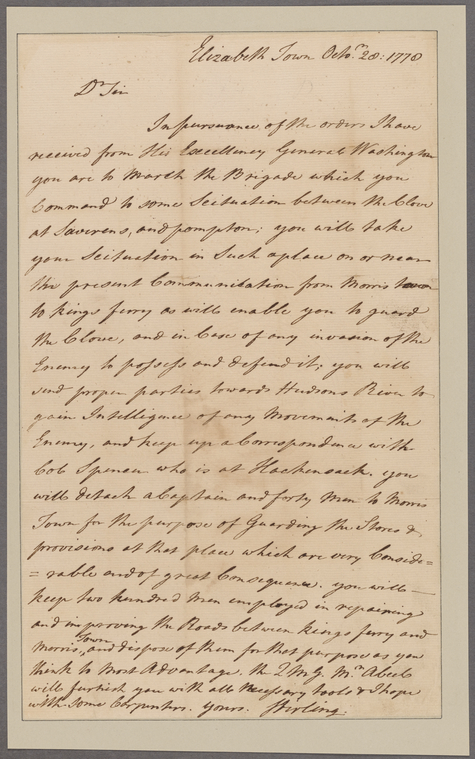 Elizabeth Town Octo.r 28: 1778
Dr Sir
In pursuance of the orders I have
received from His Excellency General Washington
you are to March the Brigade which you
Command to some Scituation between the Clove
at Saverens, and pompton; you will take
your Scituation in Such a place on or near
the present Communication from Morris town
to kings ferry as will enable you to guard
the Clove, and in Case of any invasion of the
Enemy to possess and defend it; you will
send proper parties towards Hudsons River to
gain Intelligence of any Movements of the
Enemy, and keep up a Correspondence with
Col Spencer who is at Hackensack. you
will detach a Captain and forty Men to Morris
Town for the purpose of Guarding the Stores &
provisions at that place which are very Conside=
=rable and of great Consequence. you will
keep two hundred Men employed in repairing
and improving the Roads between kings ferry and
Morris Town, and dispose of them for that purpose as you
think to Most Advantage. the Q M G Mr Abeel
will furnish you with all Necessary tools & I hope
with Some Carpenters. yours. Stirling